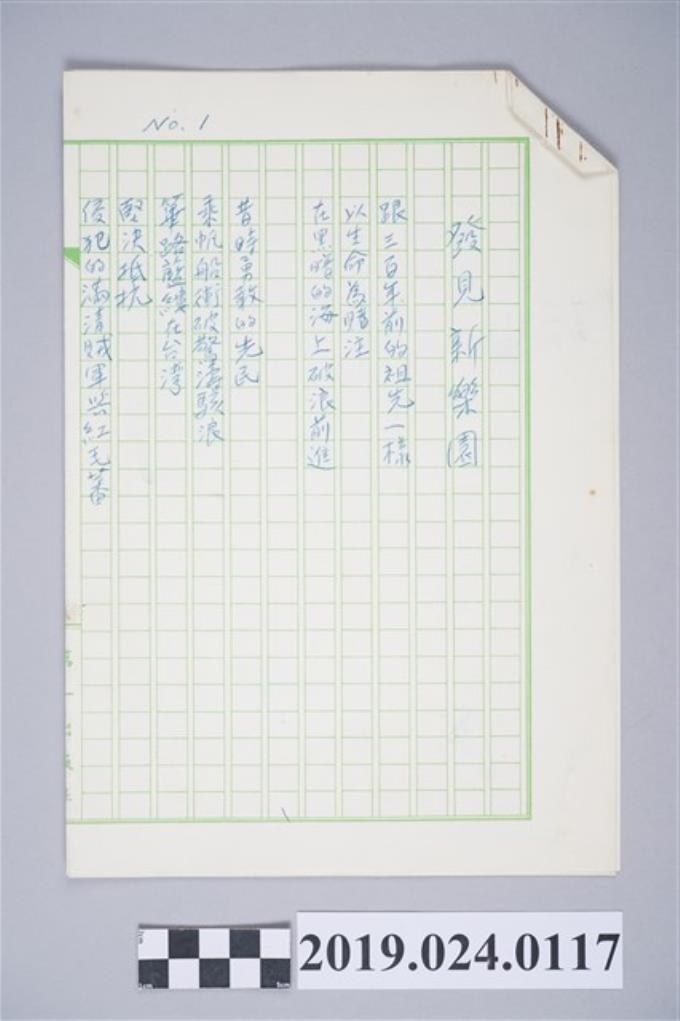 No. 1
發見新樂園
跟三百年前的祖先一樣
以生命為賭注
在黑暗的海上破浪前進
昔時勇敢的先民
乘帆船衝破驚濤駭浪
篳路藍縷在台灣
堅決抵抗
侵犯的滿清賊軍與紅毛蕃
2019.024.0117